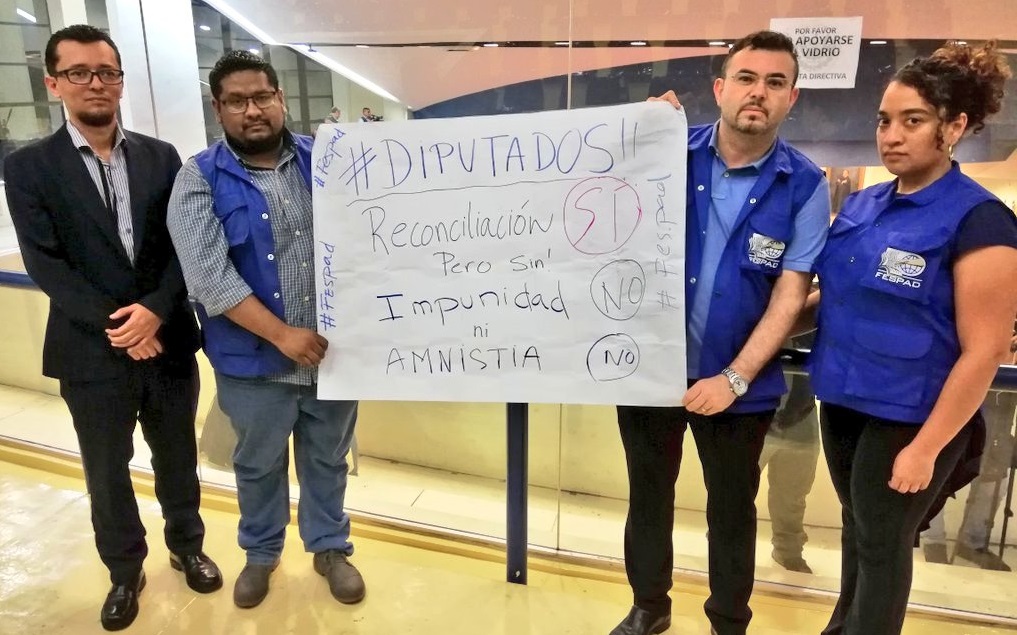 POR FAVOR
APOYARSE
VIDRIO
DIRECTIVA
#DIPUTADOS!!
Reconciliación SI
Pero Sin'
Impunidad NO
ni
AMNISTIA NO
#Fespad
#Fespad
#Fespad
FESPAD
FESPAD